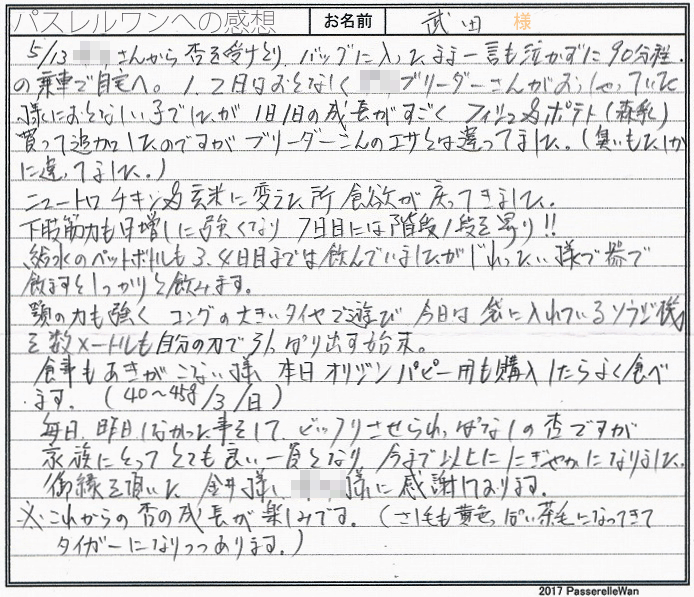 パスレルワンへの感想 お名前 武田 様
5/13 さんから杏を受けとり、バッグに入ったまま一言も泣かずに90分程
の乗車で自宅へ。1、2日はおとなしく ブリーダーさんがおっしゃっていた
様におとなしい子でしたが 1日1日の成長がすごく フィッシュ&ポテト(森乳)
買って追加したのですがブリーダーさんのエサとは違ってました。(臭いもたしか
に違ってました。)
ニュートロ チキン&玄米に変えた所 食欲が戻ってきました。
下肢筋力も日増しに強くなり 7日目には階段1段を登り!!
給水のペットボトルも3、4日目までは飲んでいましたがじれったい様で器で
飲ますとしっかりと飲みます。
顎の力も強く コングの大きいタイヤで遊び 今日は袋に入れている
を数メートルも自分の力で引っぱり出す始末。
食事もあきがこない様、本日オリジン パピー用も購入したらよく食べ
ます。(40〜45g/3/日)
毎日、昨日しなかった事をして、ビックリさせられっぱなしの杏ですが
家族にとってとても良い一員となり 今まで以上ににぎやかになりました。
御縁を頂いた 金井様、 様に感謝しております。
※これからの杏の成長が楽しみです。(さし毛も黄色っぽい茶毛になってきて
タイガーになりつつあります。)
2017 PasserelleWan